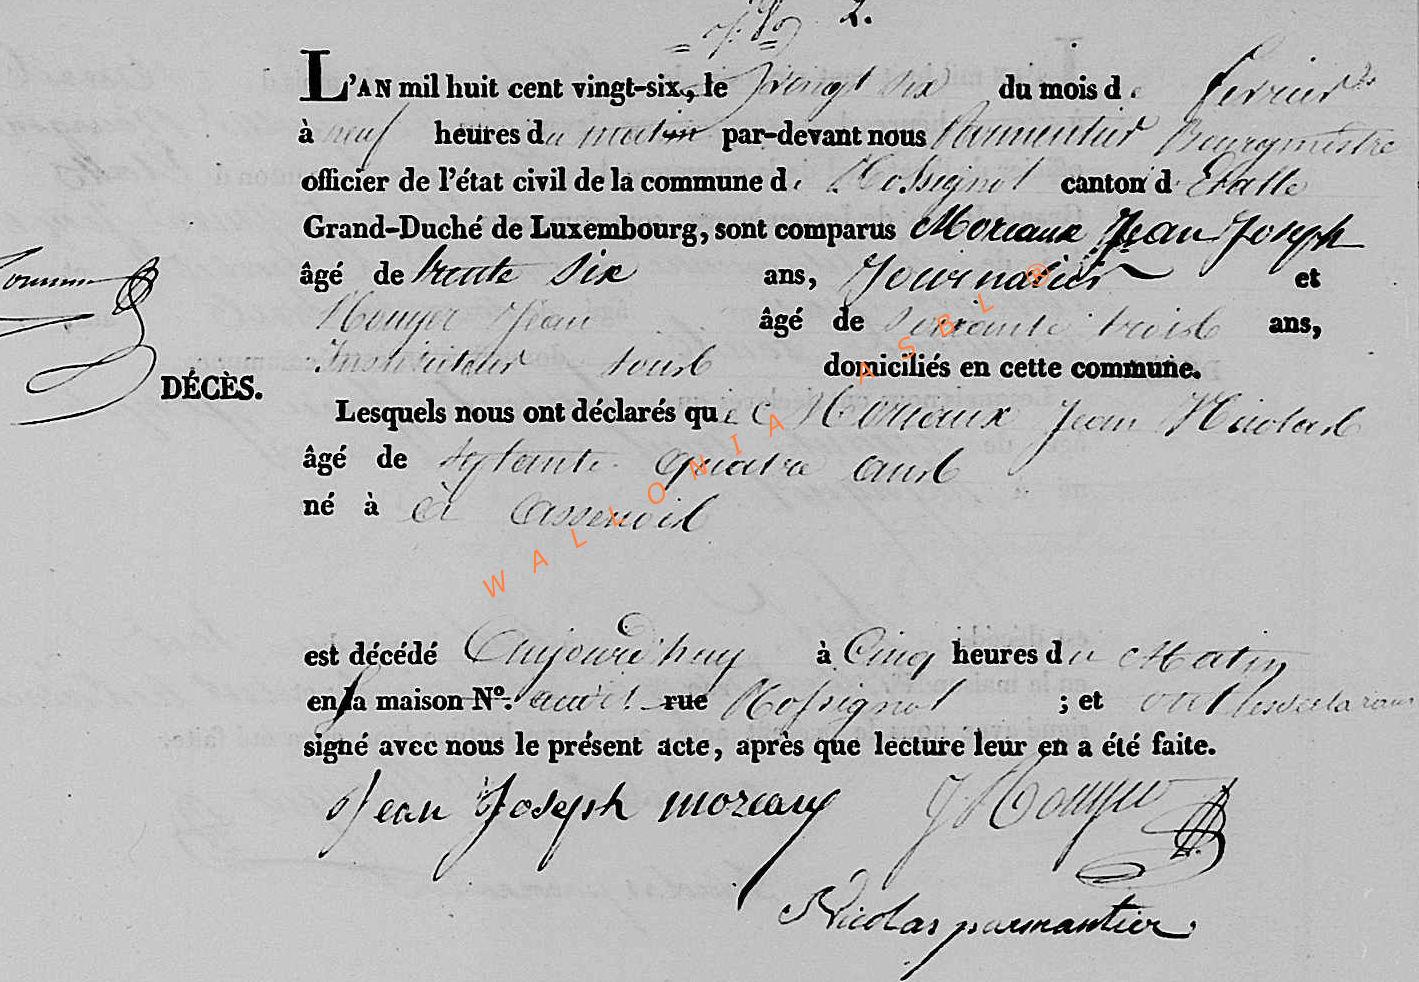 N.º 2.
L'AN mil huit cent vingt-six, le vingt six du mois de fevrier
à neuf heures du matin par-devant nous Parmentier Bourgmestre
officier de l'état civil de la commune de Rossignol canton d Etalle
Grand-Duché de Luxembourg, sont comparus Moreaux Jean Joseph
âgé de trente six ans, Journalier et
Jean âgé de soixante trois ans,
Instituteur tous domiciliés en cette commune.
DÉCÈS.
Lesquels nous ont déclarés que Moreaux Jean Nicolas
âgé de septante quatre ans
né à à assenois
est décédé Aujourd'huy à Cinq heures du Matin
en la maison N.º rue Rossignol ; et ont les declarans
signé avec nous le présent acte, après que lecture leur en a été faite.
Jean Joseph moreaux J
Nicolas parmantier
WALLONIA ASBL ®